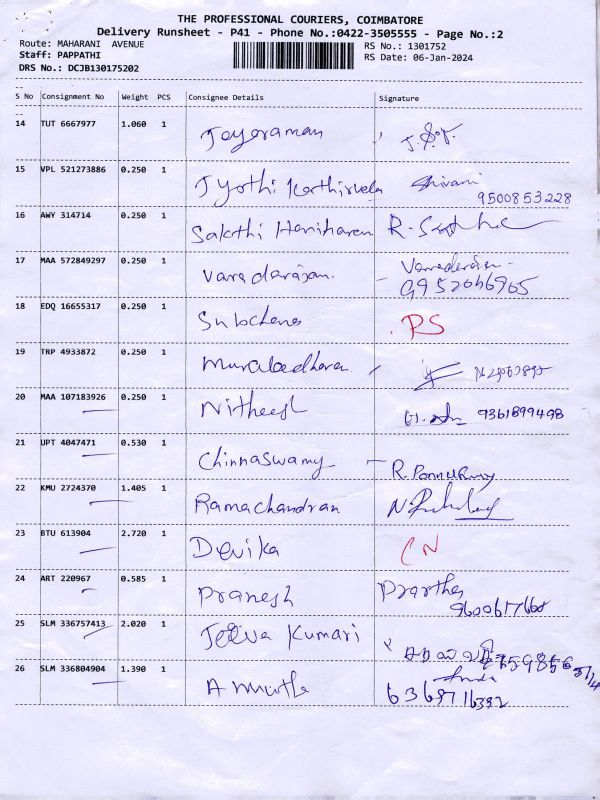 THE PROFESSIONAL COURIERS, COIMBATORE
Delivery Runsheet - P41 - Phone No.:0422-3505555 - Page No.:2
Route: MAHARANI AVENUE
RS No.: 1301752
Staff: PAPPATHI
RS Date: 06-Jan-2024
DRS No.: DCJB130175202
S No Consignment No Weight PCS Consignee Details Signature
14 TUT 6667977 1.060 1 Jeyaraman
15 VPL 521273886 0.250 1 Jyothi Karthirvela Shivani
9500853228
16 AWY 314714 0.250 1 Sakthi Hariharan
17 MAA 572849297 0.250 1 Varadarajan. Varadarajan
9952666965
18 EDQ 16655317 0.250 1 RS
19 TRP 4933872 0.250 1
20 MAA 107183926 0.250 1 Nitheesh 9361899498
21 UPT 4047471 0.530 1 Chinnaswamy
22 KMU 2724370 1.405 1 Ramachandran
23 BTU 613904 2.720 1 Devika CN
24 ART 220967 0.585 1 Pranesh Prartha
25 SLM 336757413 2.020 1 Jeeva Kumari
26 SLM 336804904 1.390 1 Amutha
6369716392